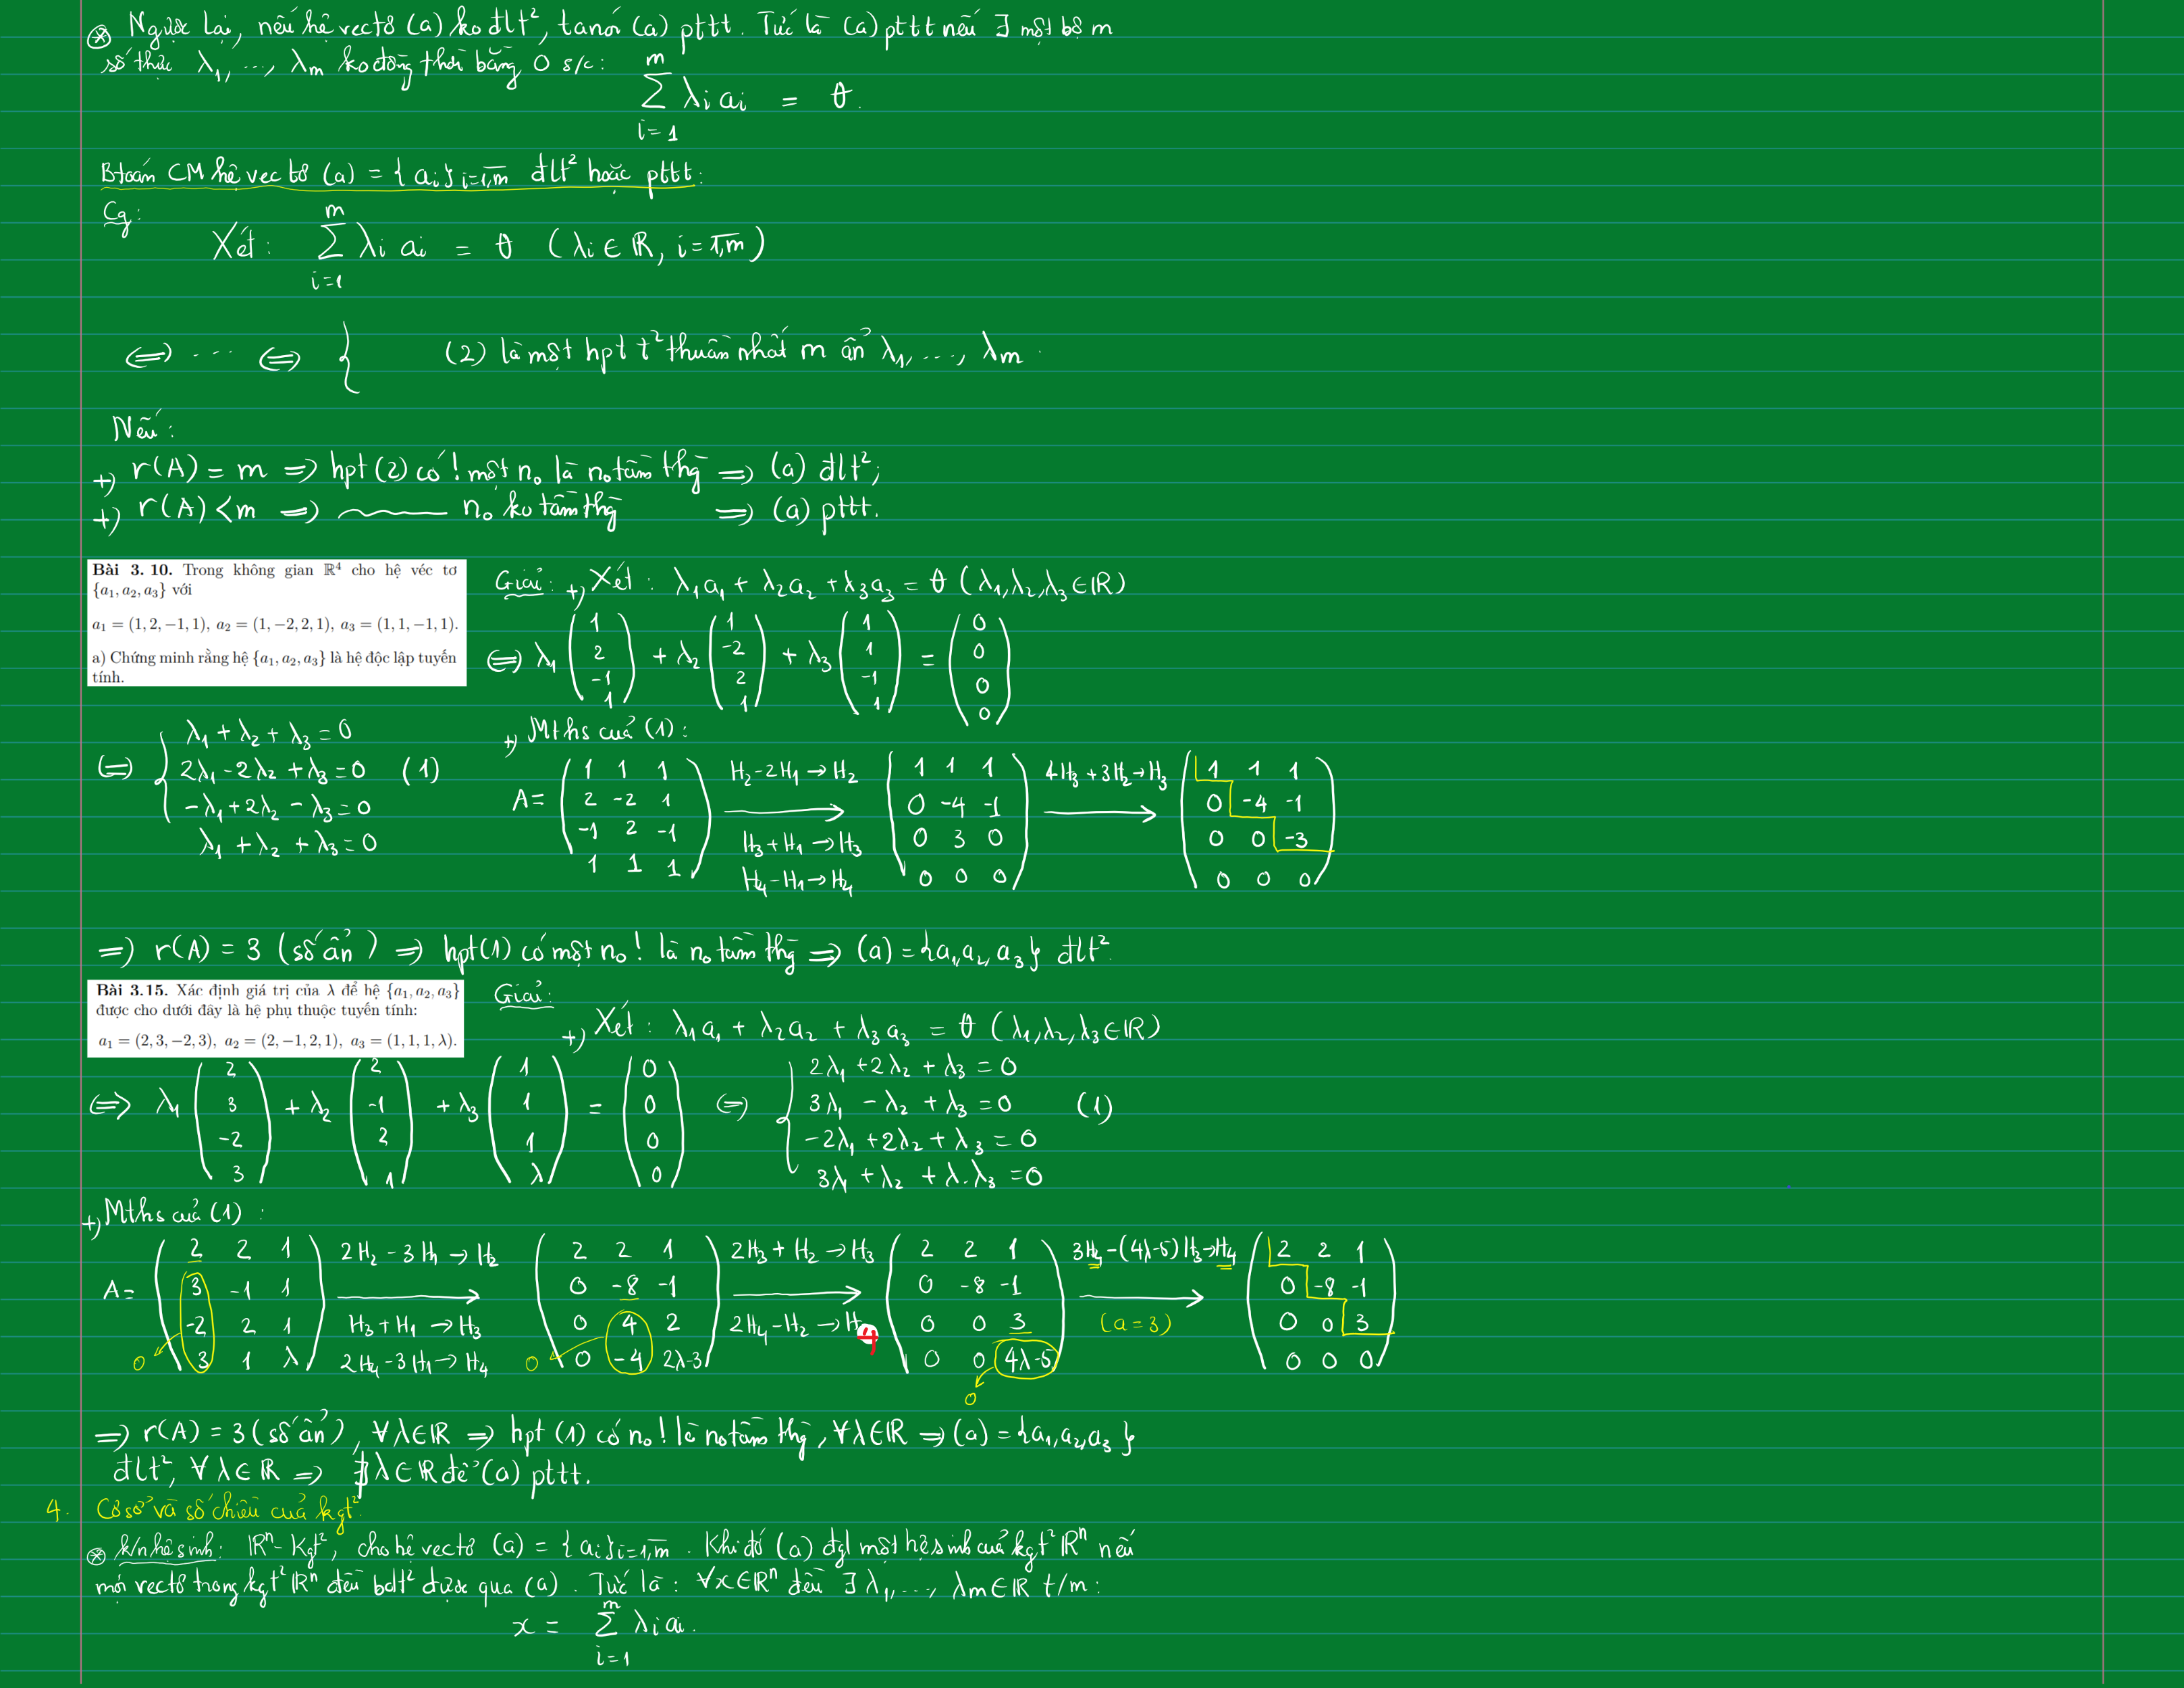 ⊛ Ngược lại, nếu hệ vectơ (a) ko đlt², ta nói (a) pttt. Tức là (a) pttt nếu ∃ một bộ m
số thực λ₁, ..., λm ko đồng thời bằng 0 s/c:
∑_{i=1}^{m} λi ai = θ.
Btoán CM hệ vectơ (a) = {ai}i=1,m đlt² hoặc pttt:
Cg:
Xét: ∑_{i=1}^{m} λi ai = θ (λi ∈ ℝ, i = 1,m)
⇔ ... ⇔ { (2) là một hpt t² thuần nhất m ẩn λ₁, ..., λm.
Nếu:
+) r(A) = m ⇒ hpt (2) có ! một n₀ là n₀ tầm thg ⇒ (a) đlt²;
+) r(A) < m ⇒ ~ n₀ ko tầm thg ⇒ (a) pttt.
Bài 3. 10. Trong không gian ℝ⁴ cho hệ véc tơ
{a₁, a₂, a₃} với
a₁ = (1, 2, −1, 1), a₂ = (1, −2, 2, 1), a₃ = (1, 1, −1, 1).
a) Chứng minh rằng hệ {a₁, a₂, a₃} là hệ độc lập tuyến
tính.
Giải: +) Xét: λ₁a₁ + λ₂a₂ + λ₃a₃ = θ (λ₁, λ₂, λ₃ ∈ ℝ)
⇔ λ₁ (1 2 -1 1) + λ₂ (1 -2 2 1) + λ₃ (1 1 -1 1) = (0 0 0 0)
⇔ { λ₁ + λ₂ + λ₃ = 0
2λ₁ - 2λ₂ + λ₃ = 0 (1)
-λ₁ + 2λ₂ - λ₃ = 0
λ₁ + λ₂ + λ₃ = 0
+) Mths của (1):
A = (1 1 1
2 -2 1
-1 2 -1
1 1 1)
H₂ - 2H₁ → H₂
H₃ + H₁ → H₃
H₄ - H₁ → H₄
(1 1 1
0 -4 -1
0 3 0
0 0 0)
4H₃ + 3H₂ → H₃
(1 1 1
0 -4 -1
0 0 -3
0 0 0)
⇒ r(A) = 3 (số ẩn) ⇒ hpt (1) có một n₀! là n₀ tầm thg ⇒ (a) = {a₁, a₂, a₃} đlt².
Bài 3.15. Xác định giá trị của λ để hệ {a₁, a₂, a₃}
được cho dưới đây là hệ phụ thuộc tuyến tính:
a₁ = (2, 3, −2, 3), a₂ = (2, −1, 2, 1), a₃ = (1, 1, 1, λ).
Giải:
+) Xét: λ₁a₁ + λ₂a₂ + λ₃a₃ = θ (λ₁, λ₂, λ₃ ∈ ℝ)
⇔ λ₁ (2 3 -2 3) + λ₂ (2 -1 2 1) + λ₃ (1 1 1 λ) = (0 0 0 0)
⇔ { 2λ₁ + 2λ₂ + λ₃ = 0
3λ₁ - λ₂ + λ₃ = 0 (1)
-2λ₁ + 2λ₂ + λ₃ = 0
3λ₁ + λ₂ + λ.λ₃ = 0
+) Mths của (1):
A = (2 2 1
3 -1 1
-2 2 1
3 1 λ)
0
2H₂ - 3H₁ → H₂
H₃ + H₁ → H₃
2H₄ - 3H₁ → H₄
(2 2 1
0 -8 -1
0 4 2
0 -4 2λ-3)
0
2H₃ + H₂ → H₃
2H₄ - H₂ → H4
(2 2 1
0 -8 -1
0 0 3
0 0 4λ-5)
0
3H₄ - (4λ-5)H₃ → H₄
(a = 3)
(2 2 1
0 -8 -1
0 0 3
0 0 0)
⇒ r(A) = 3 (số ẩn), ∀λ ∈ ℝ ⇒ hpt (1) có n₀! là n₀ tầm thg, ∀λ ∈ ℝ ⇒ (a) = {a₁, a₂, a₃}
đlt², ∀λ ∈ ℝ ⇒ ∄λ ∈ ℝ để (a) pttt.
4. Cơ sở và số chiều của kgt²
⊛ K/n hệ sinh: ℝⁿ - Kgt², cho hệ vectơ (a) = {ai}i=1,m. Khi đó (a) đgl một hệ sinh của kgt² ℝⁿ nếu
mọi vectơ trong kgt² ℝⁿ đều bdt² được qua (a). Tức là: ∀x ∈ ℝⁿ đều ∃ λ₁, ..., λm ∈ ℝ t/m:
x = ∑_{i=1}^{m} λi ai.